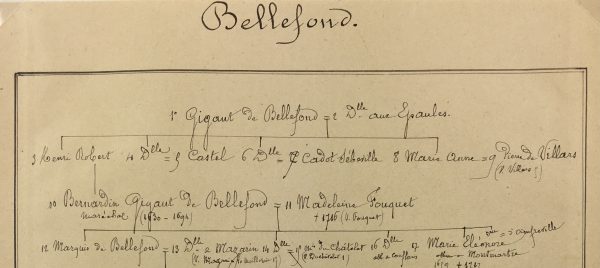 Bellefond.
1° Gigaut de Bellefond = 2 Dlle aux Epaules.
3 Henri Robert 4 Dlle = 5 Castel 6 Dlle = 7 Cadot Sebeville 8 Marie Anne = 9 Pierre de Villars
(V. Villars)
10 Bernardin Gigaut de Bellefond = 11 Madeleine Fouquet
Maréchal (1630 - 1694) † 1716 (V. Fouquet)
12 Marquis de Bellefond = 13 Dlle Mazarin 14 Dlle = Mis du Châtelet 16 Dlle 17 Marie Eléonore
(V. Mazarin) abb. Conflans abbesse Montmartre